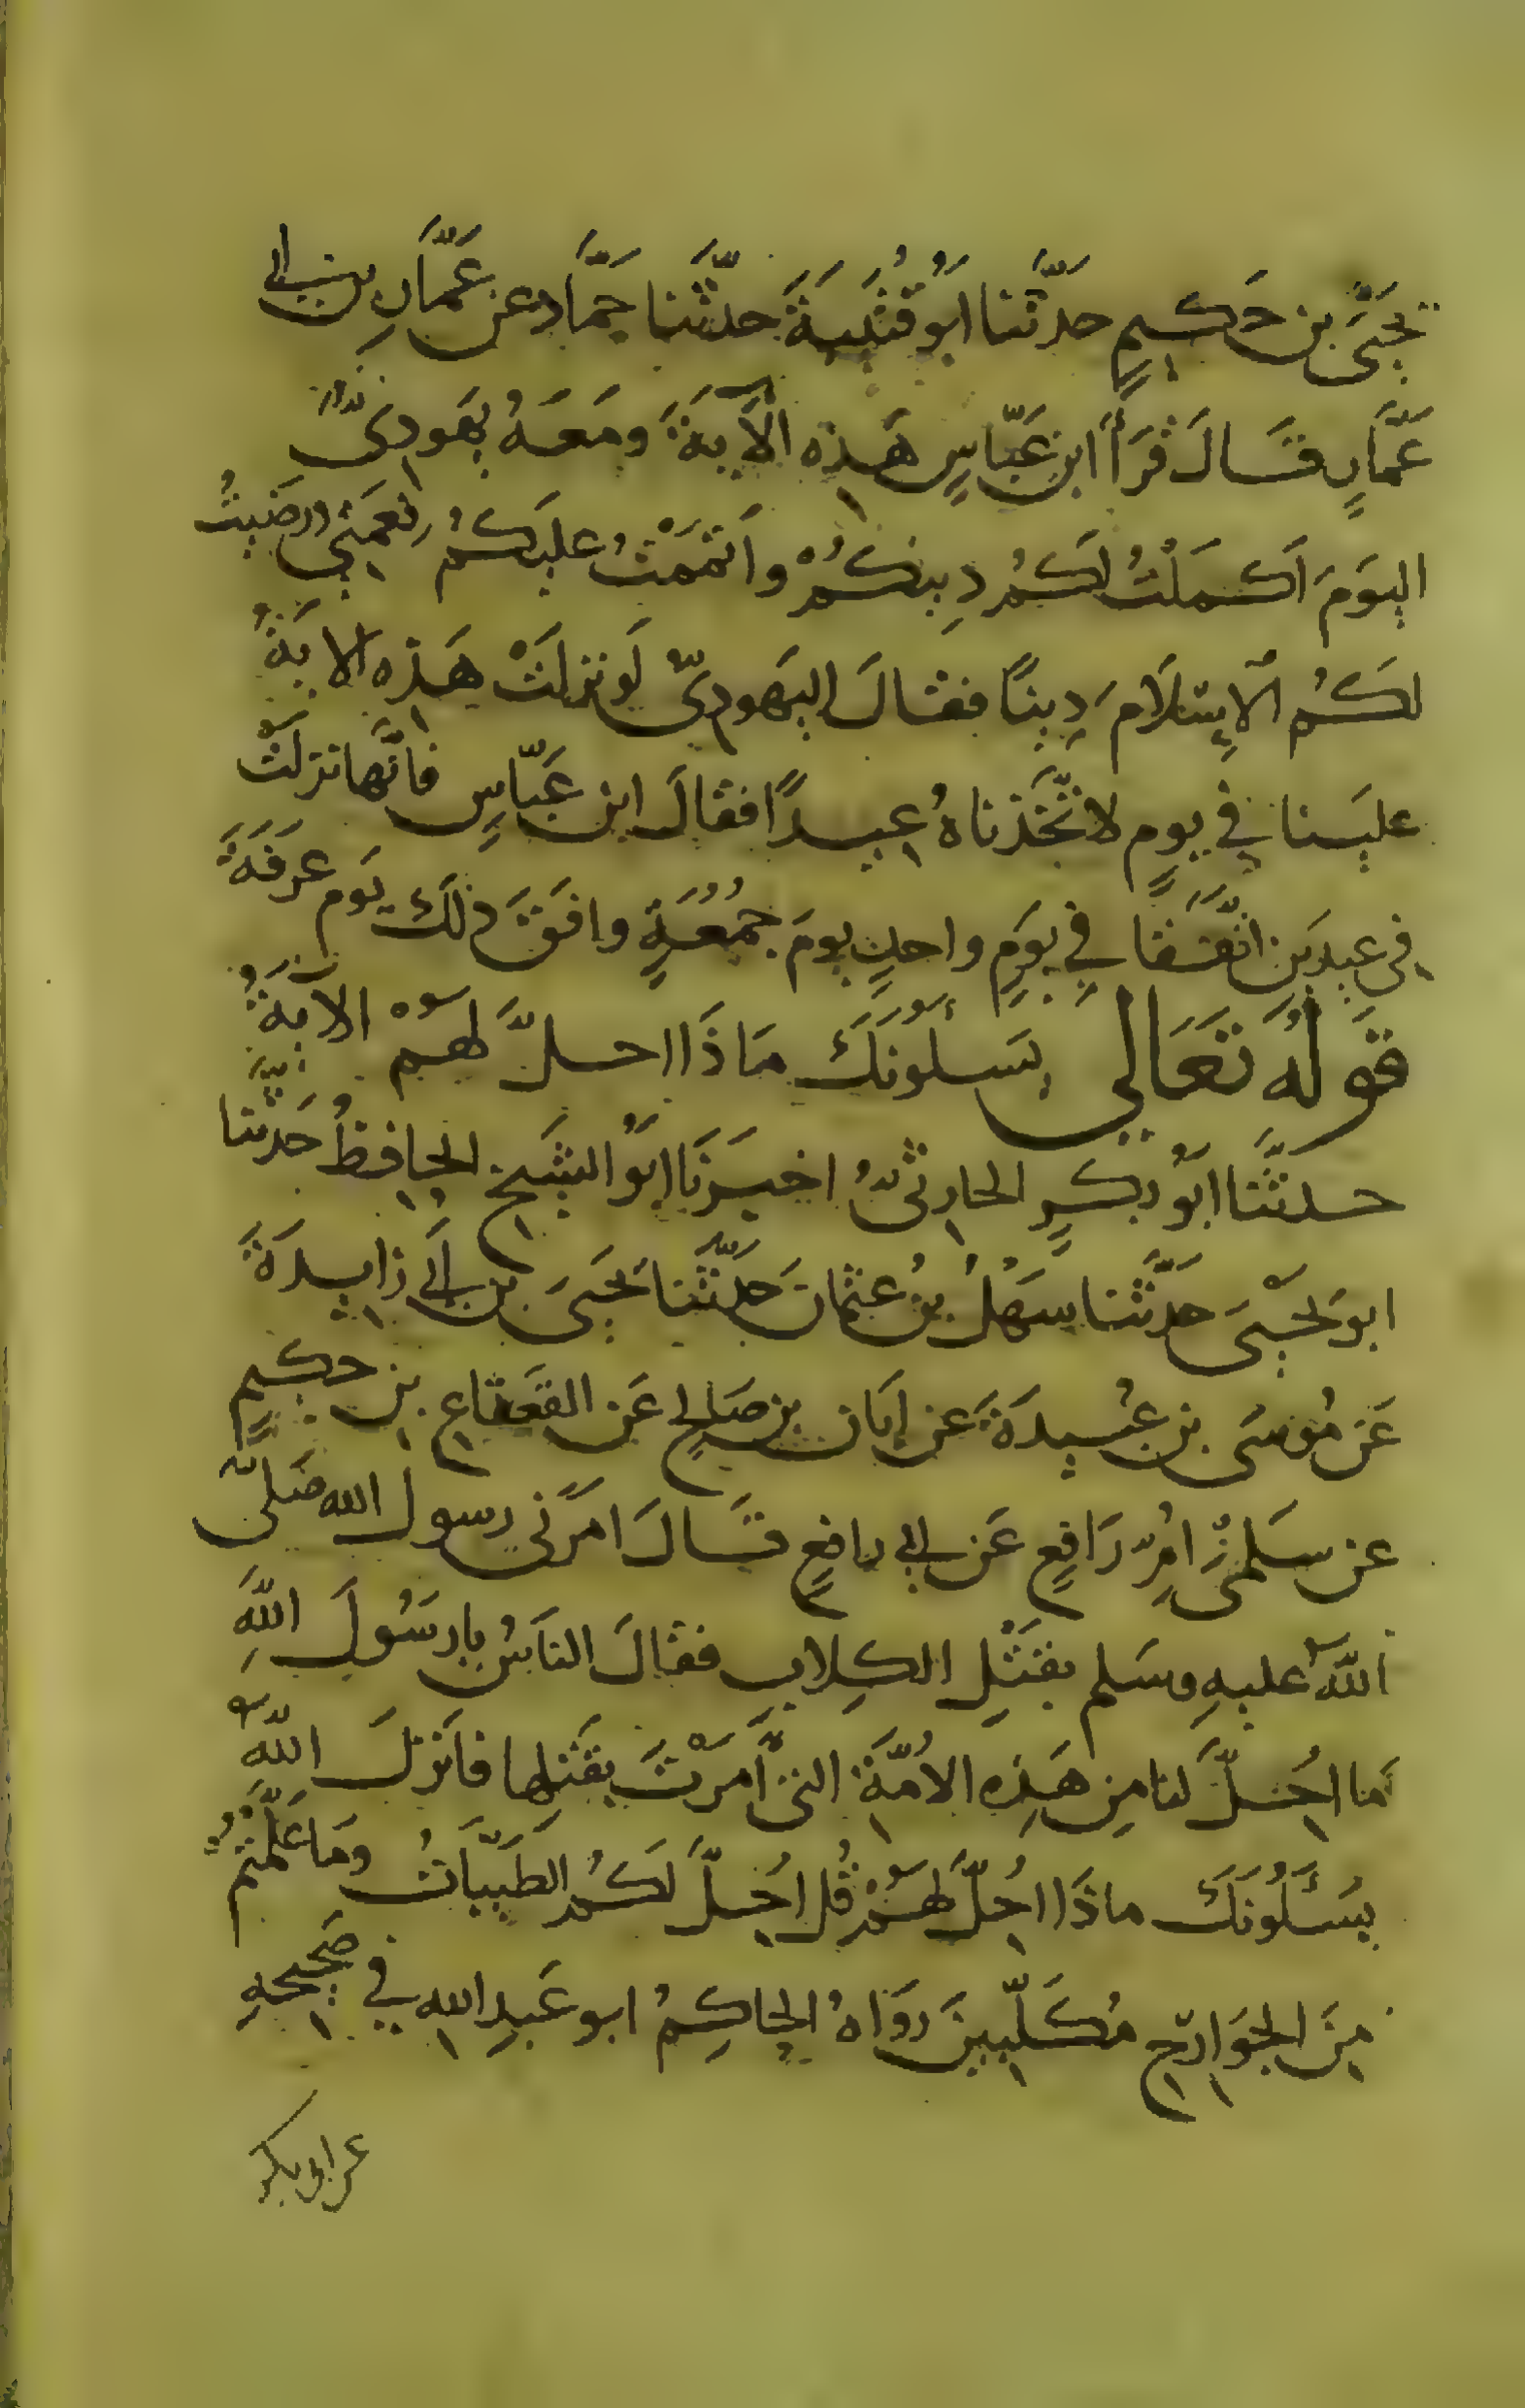 يحيى بن حكيم حدثنا ابو قتيبة حدثنا حماد عن عمار بن ابي
عمار قال قرأ ابن عباس هذه الآية ومعه يهودي
اليوم اكملت لكم دينكم واتممت عليكم نعمتي ورضيت
لكم الاسلام دينا فقال اليهودي لو نزلت هذه الاية
علينا في يوم لاتخذناه عيدا فقال ابن عباس فانها نزلت
في عيدين اتفقا في يوم واحد يوم جمعة وافق ذلك يوم عرفة
قوله تعالى يسئلونك ماذا احل لهم الآية
حدثنا ابو بكر الحارثي اخبرنا ابو الشيخ الحافظ حدثنا
ابو يحيى حدثنا سهل بن عثمان حدثنا يحيى بن ابي زايدة
عن موسى بن عبيدة عن ابان بن صالح عن القعقاع بن حكيم
عن سلمى ام رافع عن ابي رافع قال امرني رسول الله صلى
الله عليه وسلم بقتل الكلاب فقال الناس يا رسول الله
ما احل لنا من هذه الامة التي امرت بقتلها فانزل الله
يسئلونك ماذا احل لهم قل احل لكم الطيبات وما علمتم
من الجوارح مكلبين رواه الحاكم ابو عبد الله في صحيحه
عن ابي بكر